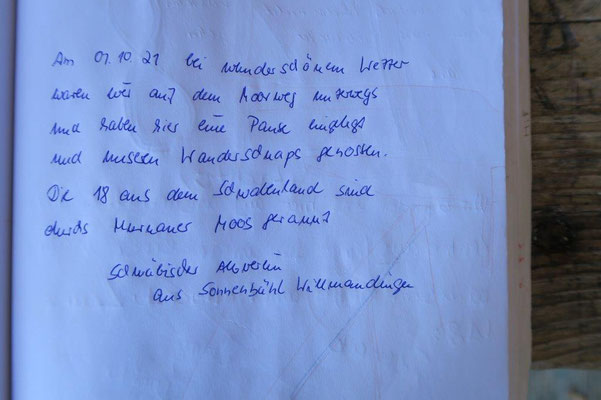 Am 01.10.21 bei wunderschönem Wetter
waren wir auf dem Moorweg unterwegs
und haben hier eine Pause eingelegt
und unseren Wanderschnaps genossen.
Die 18 aus dem Schwabenland sind
durchs Murnauer Moos gerannt
Schwäbischer Albverein
aus Sonnenbühl Willmandingen